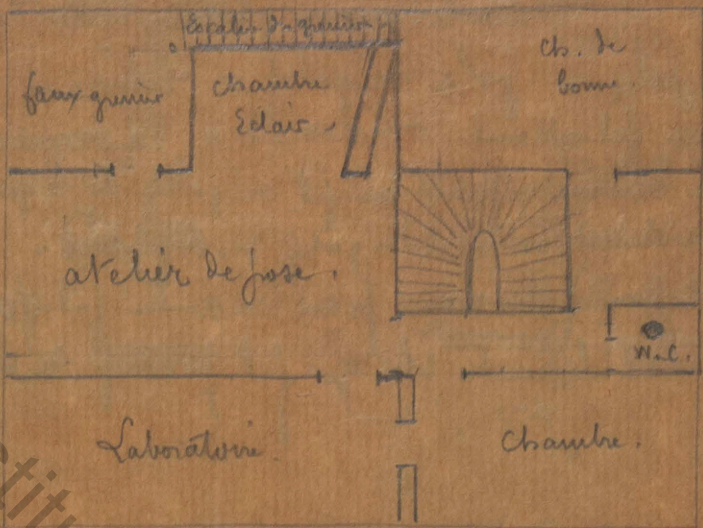 Escalier du grenier
faux grenier
chambre
Eclair.
ch. de
bonne.
atelier de pose.
W.C.
Laboratoire.
Chambre.